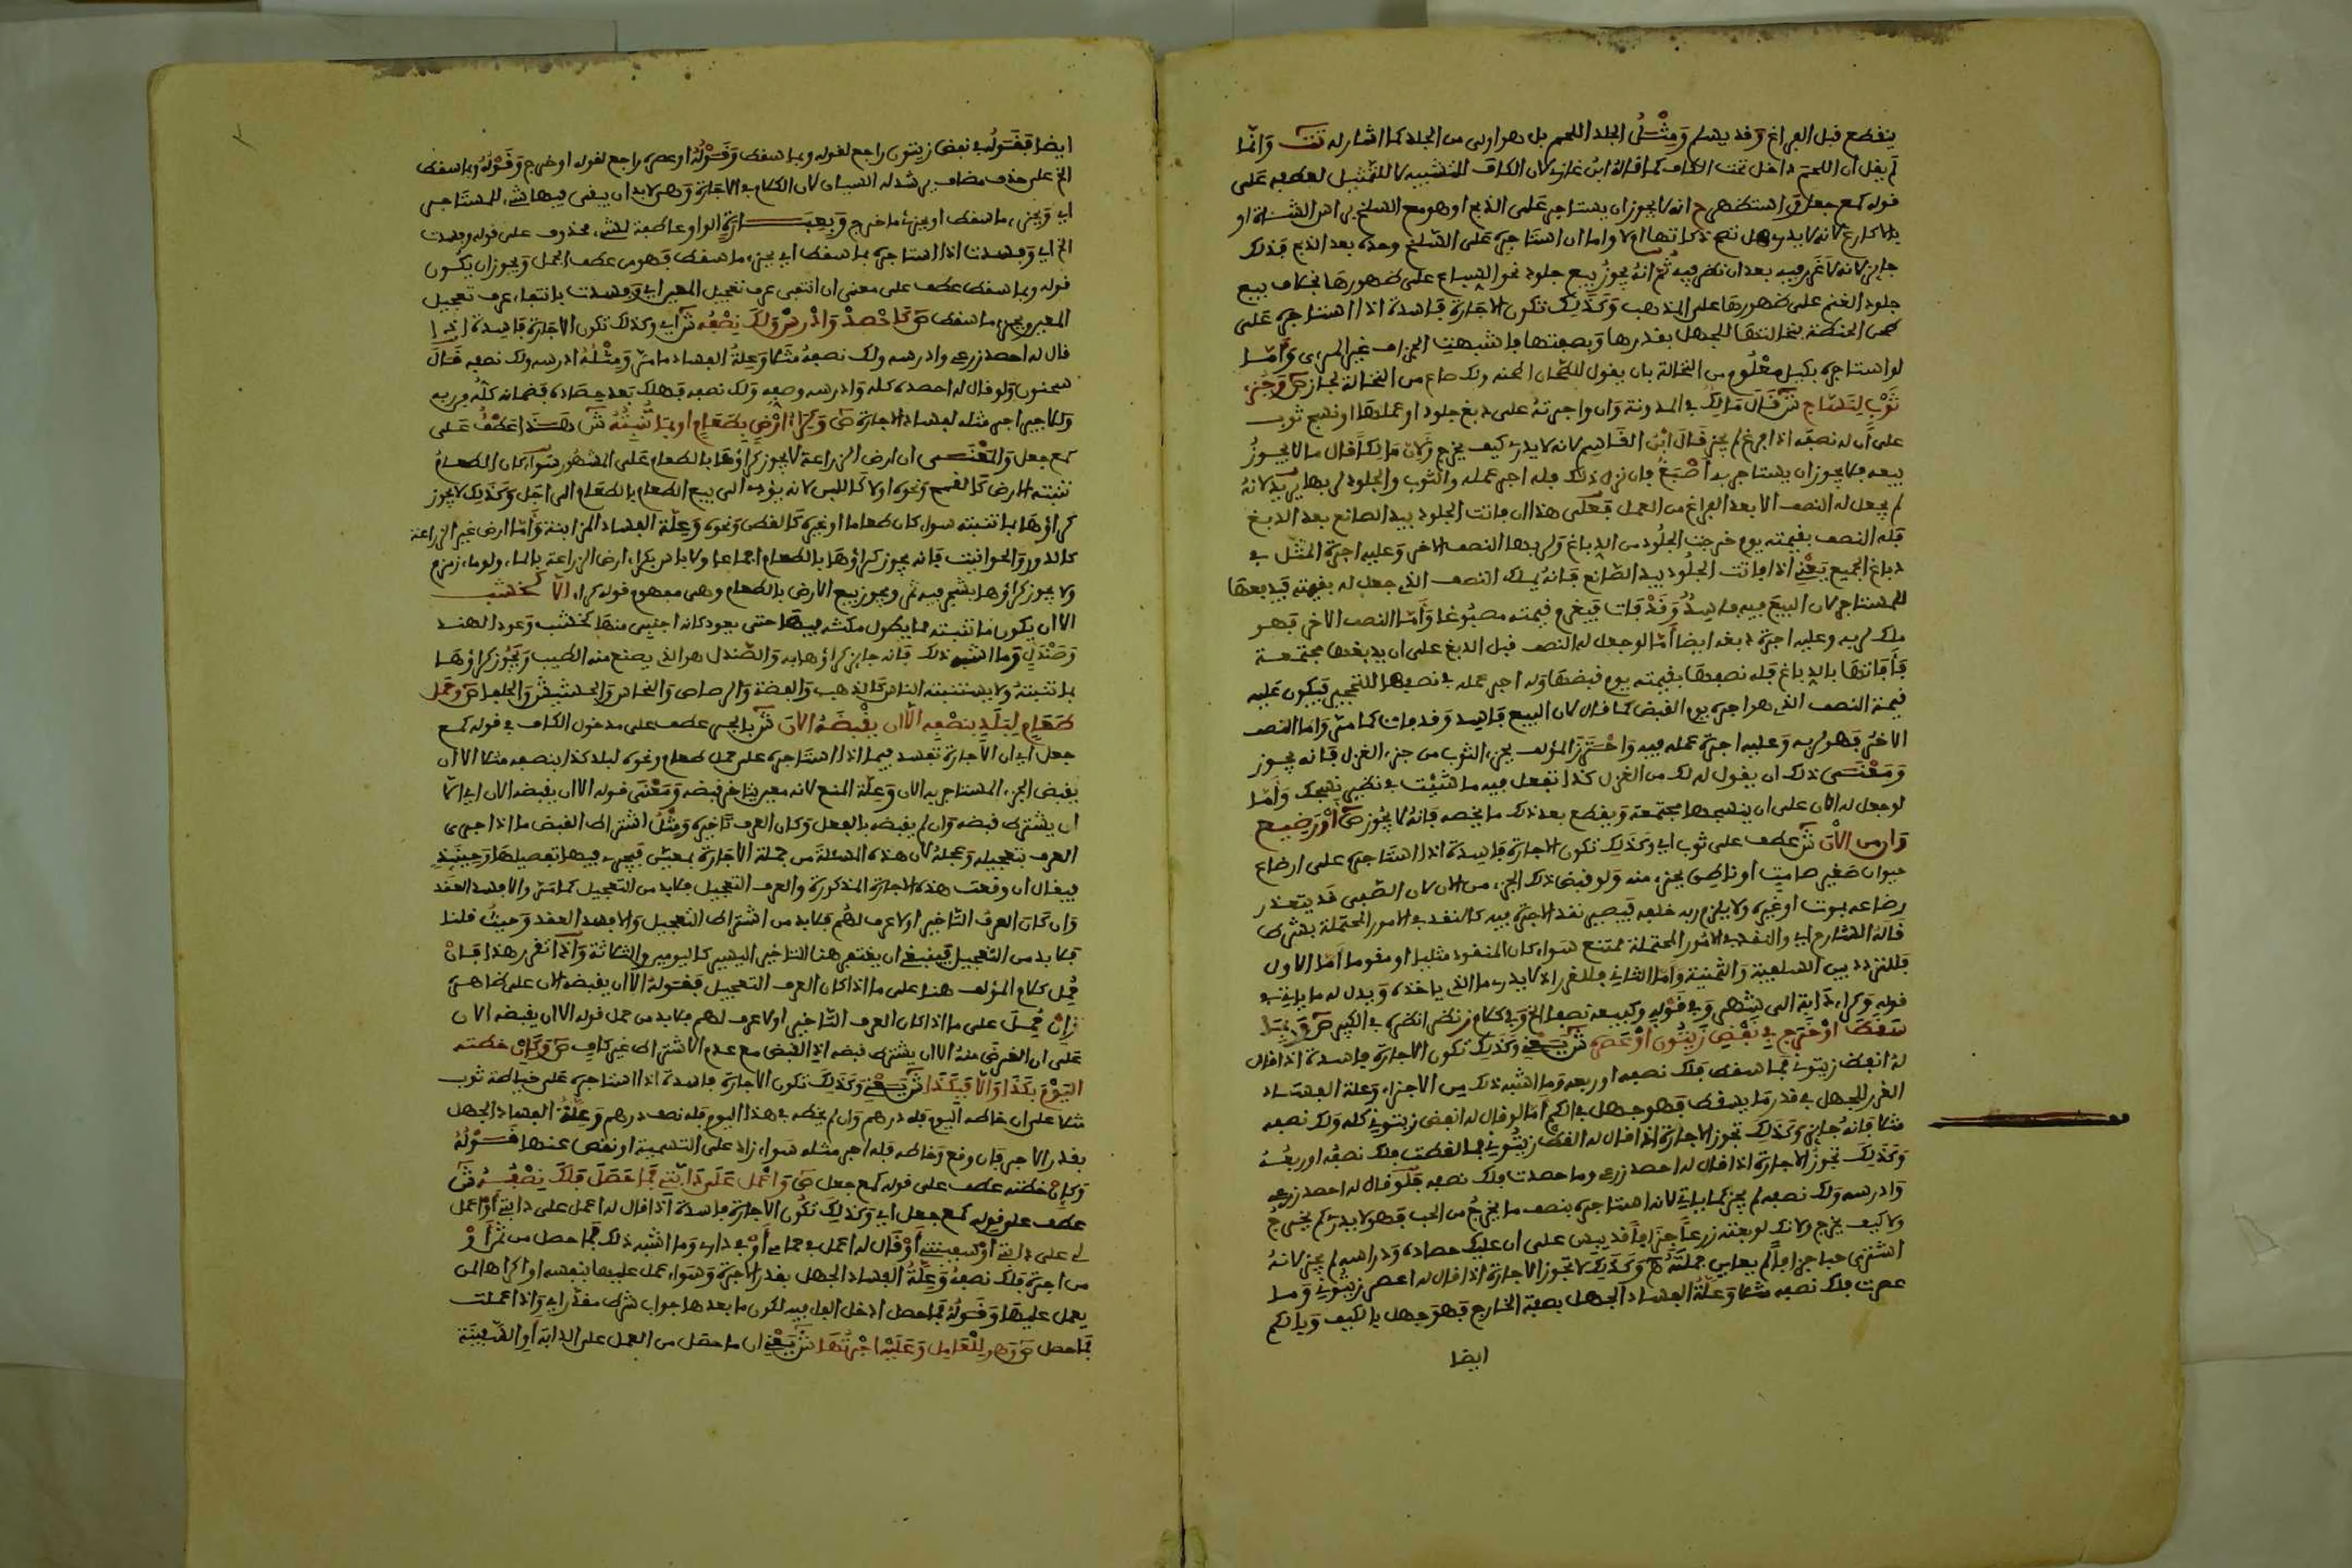 ينقطع قبل الفراغ وقد يسلم ومثل الجلد اللحم بل هو اولى من الجلد كما اشار له تت وانما
لم يقل ان اللحم داخل تحت الكاف كما قاله ابن غازي لان الكاف للتشبيه لا للتمثيل لعطفه على
قوله كمع جعل واستظهر ح انه لا يجوز ان يستاجره على الذبح او هو مع السلخ براس الشاة او
بالاكارع لانه لا يدري هل تصح ذكاتها او لا واما ان استاجره على السلخ وحده بعد الذبح فذلك
جايز لانه لا غرر فيه بعد ان نظر فيه ثم انه يجوز بيع جلود نحو السباع على ظهورها بخلاف بيع
جلود الغنم على ظهورها على المذهب وكذلك تكون الاجارة فاسدة اذا استاجره على
طحن الحنطة بنخالتها للجهل بقدرها وبصفتها فاشبهت الجزاف غير المرئي واما
لو استاجره بكيل معلوم من النخالة بان يقول للطحان اطحنه ولك صاع من النخالة لجاز ص وجزء
ثوب لنساج ش قال مالك في المدونة وان واجرته على دبغ جلود او عملها او نسج ثوب
على ان له نصفه اذا فرغ لم يجز قال ابن القاسم لانه لا يدري كيف يخرج ولان مالكا قال ما لا يجوز
بيعه فلا يجوز ان يستاجر به اصبغ فان نزل ذلك فله اجر عمله والثوب والجلود لربها يريد لانه
لم يجعل له النصف الا بعد الفراغ من العمل فعلى هذا ان فاتت الجلود بيد الصانع بعد الدبغ
فله النصف بقيمته يوم خرجت الجلود من الدباغ ولربها النصف الاخر وعليه اجرة المثل في
دباغ الجميع يعني اذا فاتت الجلود بيد الصانع فانه يملك النصف الذي جعل له بقيمته فيدفعها
للمستاجر لان البيع فيه فاسد وقد فات فيغرم قيمته مصبوغا واما النصف الاخر فهو
ملك لربه وعليه اجرة دبغه ايضا اما لو جعل له النصف قبل الدبغ على ان يدبغها مجتمعة
فافاتها بالدباغ فله نصفها بقيمته يوم قبضها وله اجر عمله في نصفها للتحجير فيكون عليه
قيمة النصف الذي هو اجرة يوم القبض كما قال لان البيع فاسد وقد فات كما مر واما النصف
الاخر فهو لربه وعليه اجرة عمله فيه واحترز المؤلف بجزء الثوب من جزء الغزل فانه يجوز
ومعنى ذلك ان يقول له لك من الغزل كذا تفعل فيه ما شئت في نظير نسجك واما
لو جعل له الان على ان ينسجها مجتمعة ويقطع بعد ذلك ما يخصه فانه لا يجوز ص او رضيع
وان من الان ش عطف على ثوب اي وكذلك تكون الاجارة فاسدة اذا استاجره على ارضاع
حيوان صغير صامت او ناطق بجزء منه ولو قبض ذلك الجزء من الان لان الصبي قد يتعذر
رضاعه بموت او غيره ولا يلزم ربه خلفه فيصير نقد الاجرة فيه كالنقد في الامور المحتملة بشرط
قاله الشارح اي والنقد في الامور المحتملة ممتنع سواء كان المنقود مثليا او مقوما اما الاول
فللتردد بين السلفية والثمنية واما الثاني فللغرر اذ لا يدري ما الذي ياخذه ويدل له ما ياتي في
قوله وكراء دابة الى شهر وفي قوله وكبيعه نصفا الخ وفي كلام ز نظر انظره في الكبير ص وبما
سقط او خرج في نفض زيتون او عصره ش يعني وكذلك تكون الاجارة فاسدة اذا قال
له انفض زيتوني فما سقط فلك نصفه او ربعه وما اشبه ذلك من الاجزاء وعلة الفساد
الغرر للجهل في قدر ما يسقط فهو جهل في الكم اما لو قال له انفض زيتوني كله ولك نصفه
مثلا فانه جايز وكذلك تجوز الاجارة اذا قال له القط زيتوني فما لقطت فلك نصفه او ربعه
وكذلك تجوز الاجارة اذا قال له احصد زرعي وما حصدت فلك نصفه فلو قال له احصد زرعي
وادرسه ولك نصفه لم يجز كما ياتي لانه استاجره بنصف ما يخرج من الحب فهو لا يدري كم يخرج
ولا كيف يخرج ولانك لو بعته زرعا جزافا قد يبس على ان عليك حصاده ودراسه لم يجز لانه
اشترى حبا جزافا لم يعاين جملته وكذلك لا تجوز الاجارة اذا قال له اعصر زيتوني وما
عصرت فلك نصفه مثلا وعلة الفساد الجهل بصفة الخارج فهو جهل بالكيف وبالكم
ايضا
ايضا فقوله في نفض زيتون راجع لقوله وبما سقط وقوله او عصره راجع لقوله او خرج وقوله وبما سقط
الخ على حذف مضاف يرشد له السياق لان الكلام في الاجارة وهي لا بد ان يبقى فيها شيء للمستاجر
اي وبجزء ما سقط او بجزء ما خرج وبعبارة الواو عاطفة لشيء محذوف على قوله وفسدت
الخ اي وفسدت اذا استاجره بما سقط اي بجزء ما سقط فهو من عطف الجمل ويجوز ان يكون
قوله وبما سقط عطف على معنى ان انتفى عرف تعجيل المعين اي وفسدت بانتفاء عرف تعجيل
المعين وبجزء ما سقط ص كاحصد وادرس ولك نصفه ش اي وكذلك تكون الاجارة فاسدة اذا
قال له احصد زرعي وادرسه ولك نصفه مثلا وعلة الفساد ما مر ومثله ادرسه ولك نصفه قال
سحنون ولو قال له احصده كله وادرسه وصفه ولك نصفه فهلك بعد حصاده فضمانه كله من ربه
وللاجير اجر مثله لفساد الاجارة ص وكراء ارض بطعام او بما تنبته ش هذا عطف على
كمع جعل والمعنى ان ارض الزراعة لا يجوز كراؤها بالطعام على المشهور سواء كان الطعام
تنبته الارض كالقمح ونحوه او لا كاللبن لانه يؤدي الى بيع الطعام بالطعام الى اجل وكذلك لا يجوز
كراؤها بما تنبته سواء كان طعاما او غيره كالقطن ونحوه وعلة الفساد المزابنة واما ارض غير الزراعة
كالدور والحوانيت فانه يجوز كراؤها بالطعام اجماعا ولا باس بكراء ارض الزراعة بالماء ولو ماء زمزم
ولا يجوز كراؤها بشجر فيه ثمر ويجوز بيع الارض بالطعام وهي مفهوم قوله كراء الا كخشب
الا ان يكون ما تنبته مما يطول مكثه فيها حتى يعود كانه اجنبي منها كخشب وعود الهند
وصندل وما اشبه ذلك فانه جايز كراؤها به والصندل هو الذي يصنع منه الطيب ويجوز كراؤها
بما تنبته ولا يستنبته الناس كالذهب والفضة والرصاص والنحاس والحشيش والحلفا ص وحمل
طعام لبلد بنصفه الا ان يقبضه الان ش بالجر عطف على مدخول الكاف في قوله كمع
جعل اي ان الاجارة تفسد فيما اذا استاجره على حمل طعام ونحوه لبلد كذا بنصفه مثلا الا ان
يقبض الجزء المستاجر به الان وعلة المنع لانه معين يتاخر قبضه ومعنى قوله الا ان يقبضه الان اي الا
ان يشترط قبضه وان لم يقبضه بالفعل وكان العرف تاخيره ومثل اشتراط القبض ما اذا جرى
العرف بتعجيله وعجله لان هذه المسئلة من جملة الاجارة بمعين فيجري فيها تفصيلها وحينئذ
فيقال ان وقعت هذه الاجارة المذكورة والعرف التعجيل فلا بد من التعجيل كما مر والا فسد العقد
وان كان العرف التاخير او لا عرف لهم فلا بد من اشتراط التعجيل والا فسد العقد وحيث قلنا
فلا بد من التعجيل فينبغي ان يغتفر هنا التاخير اليسير كاليومين والثلاثة واذا تقرر هذا فان
حمل كلام المؤلف هنا على ما اذا كان العرف التعجيل فقوله الا ان يقبضه الان على ظاهره
وان حمل على ما اذا كان العرف التاخير او لا عرف لهم فلا بد من حمل قوله الا ان يقبضه الان
على ان الغرض منه الا ان يشترط قبضه اذ القبض مع عدم الاشتراط غير كاف ص وكان خطته
اليوم بكذا والا فبكذا ش يعني وكذلك تكون الاجارة فاسدة اذا استاجره على خياطة ثوب
مثلا على ان خاطه اليوم فله درهم وان لم يخطه في هذا اليوم فله نصف درهم وعلة الفساد الجهل
بقدر الاجر فان وقع وخاطه فله اجر مثله سواء زاد على التسمية او نقص عنها فقوله
وكان خطته عطف على قوله كمع جعل ص واعمل على دابتي فما حصل فلك نصفه ش
عطف على قوله كمع جعل اي وكذلك تكون الاجارة فاسدة اذا قال له اعمل على دابتي او اعمل
لي على دابتي او سفينتي او قال له اعمل في حمامي او في داري وما اشبه ذلك فما حصل من ثمن او
من اجرة فلك نصفه وعلة الفساد الجهل بقدر الاجرة وسواء عمل عليها بنفسه او اكراها لمن
يعمل عليها وقوله فما حصل ادخل الفا فيه لكون ما بعدها جواب شرط مقدر اي واذا عملت
فما حصل ص وهو للعامل وعليه اجرتها ش يعني ان ما حصل من العمل على الدابة او السفينة